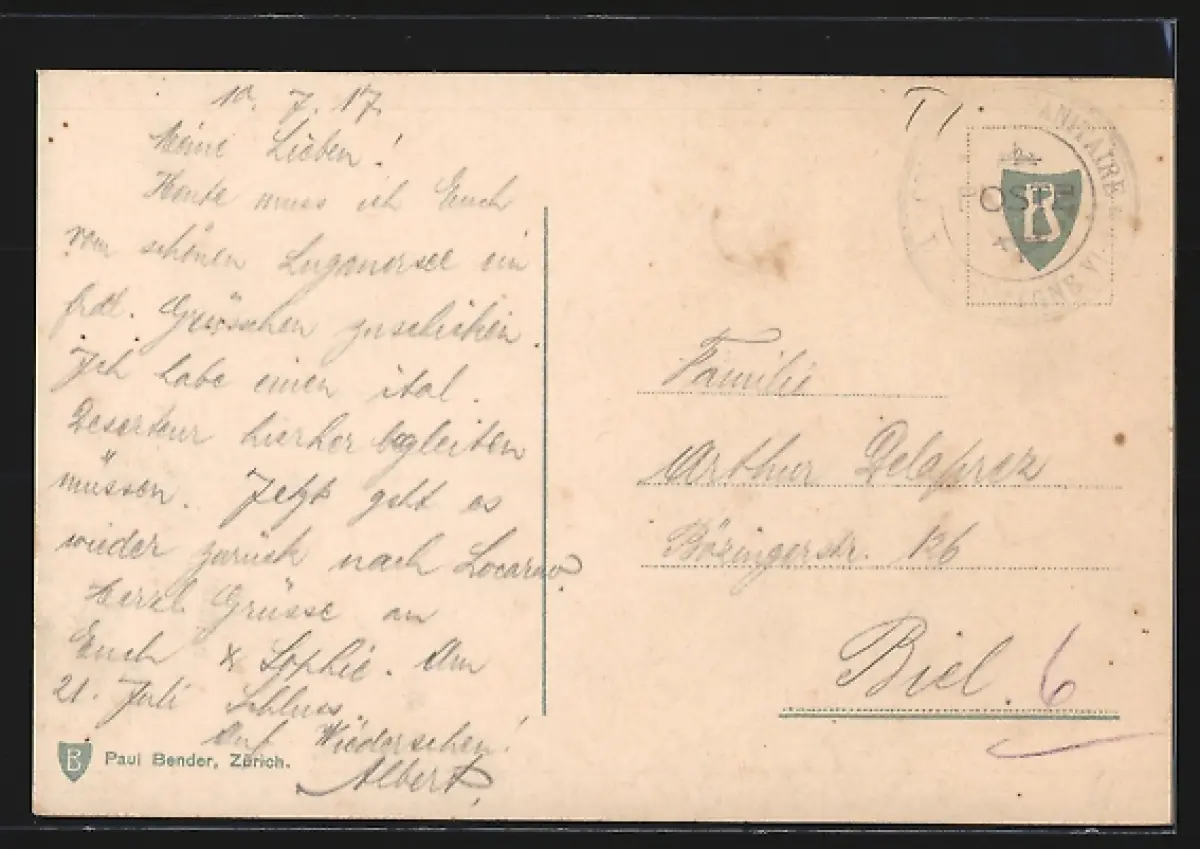 10. 7. 17.
Meine Lieben!
Heute muss ich Euch
vom schönen Luganersee ein
frdl. Grüsschen zuschicken.
Ich habe einen ital.
Deserteur hierher begleiten
müssen. Jetzt geht es
wieder zurück nach Locarno
Herzl. Grüsse an
Euch & Sophie. Am
21. Juli Schluss
Auf Wiedersehen!
Albert
B Paul Bender, Zürich.
POSTE
Familie
Arthur Delaprez
Bözingerstr. 126
Biel. 6